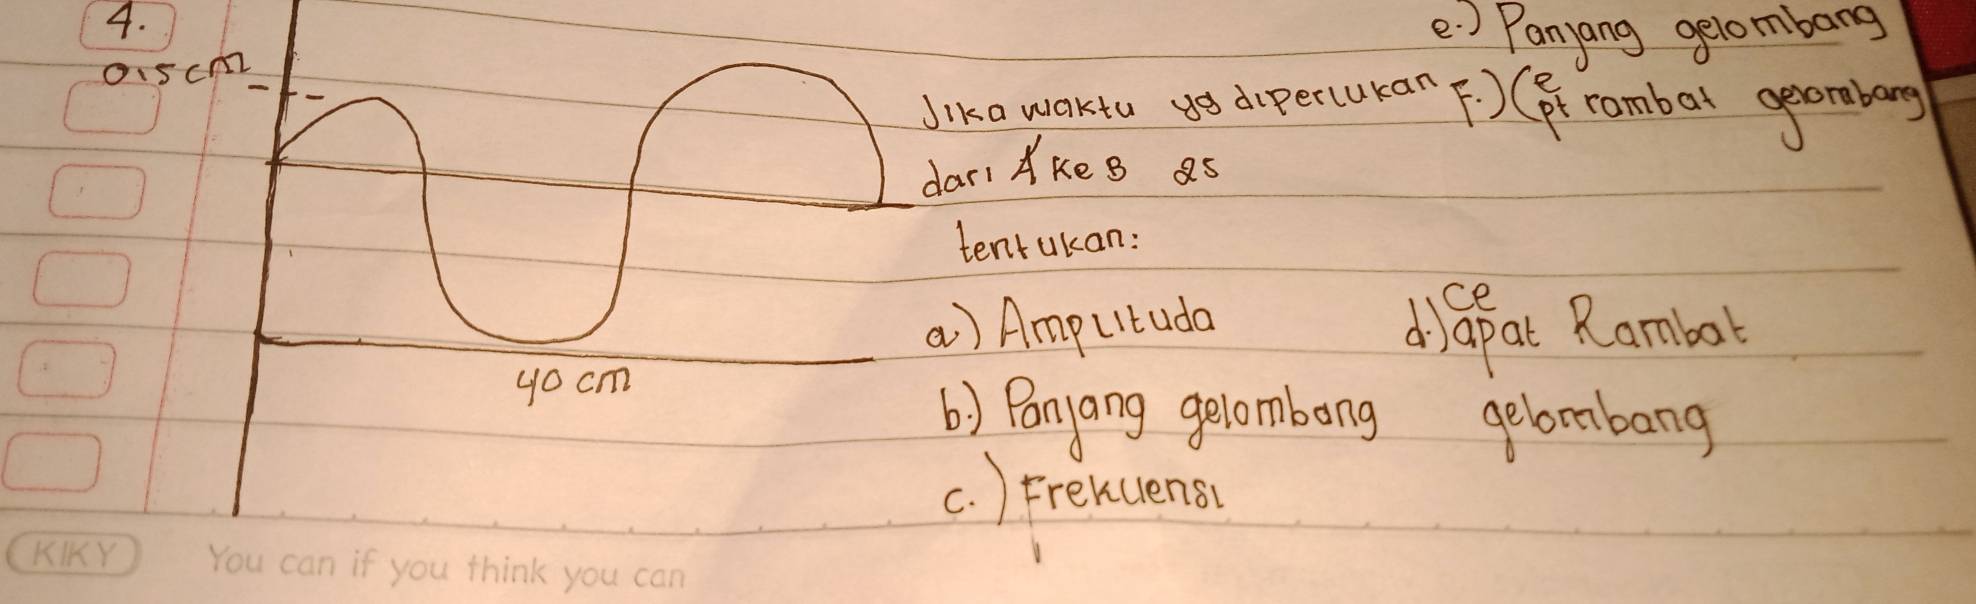 4.
0,5 cm
40 cm
Jika waktu yg diperlukan
dari A ke B 2s
tentukan:
a) Amplituda
b.) Panjang gelombang
c.) Frekuensi
d.) Cepat Rambat
gelombang
e.) Panjang gelombang
F.) Cept rambat gelombang
KIKY
You can if you think you can